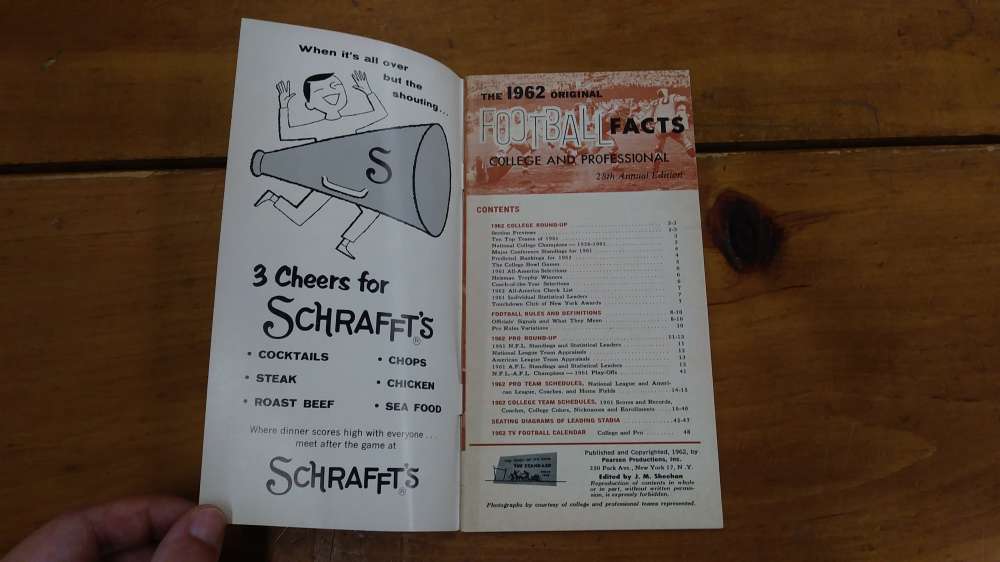 When it's all over
but the
shouting...
S
3 Cheers for
SCHRAFFT'S®
• COCKTAILS
• STEAK
• ROAST BEEF
• CHOPS
• CHICKEN
• SEA FOOD
Where dinner scores high with everyone...
meet after the game at
SCHRAFFT'S®
THE 1962 ORIGINAL
FOOTBALL FACTS
COLLEGE AND PROFESSIONAL
28th Annual Edition
CONTENTS
1962 COLLEGE ROUND-UP
Section Previews
Ten Top Teams of 1961
National College Champions — 1924-1961
Major Conference Standings for 1961
Predicted Rankings for 1962
The College Bowl Games
1961 All-America Selections
Heisman Trophy Winners
Coach-of-the Year Selections
1962 All-America Check List
1961 Individual Statistical Leaders
Touchdown Club of New York Awards
FOOTBALL RULES AND DEFINITIONS 8-10
Officials' Signals and What They Mean 8-10
Pro Rules Variations 10
1962 PRO ROUND-UP 11-13
1961 N.F.L. Standings and Statistical Leaders 11
National League Team Appraisals 12
American League Team Appraisals 13
1961 A.F.L. Standings and Statistical Leaders 13
N.F.L.-A.F.L. Champions — 1961 Play-Offs 41
1962 PRO TEAM SCHEDULES, National League and Ameri-
can League, Coaches, and Home Fields 14-15
1962 COLLEGE TEAM SCHEDULES, 1961 Scores and Records,
Coaches, College Colors, Nicknames and Enrollments 16-40
SEATING DIAGRAMS OF LEADING STADIA 42-47
1962 TV FOOTBALL CALENDAR College and Pro 48
THE STANDARD
Published and Copyrighted, 1962, by
Pearsen Productions, Inc.
230 Park Ave., New York 17, N. Y.
Edited by J. M. Sheehan
Reproduction of contents in whole
or in part, without written permis-
sion, is expressly forbidden.
Photographs by courtesy of college and professional teams represented.